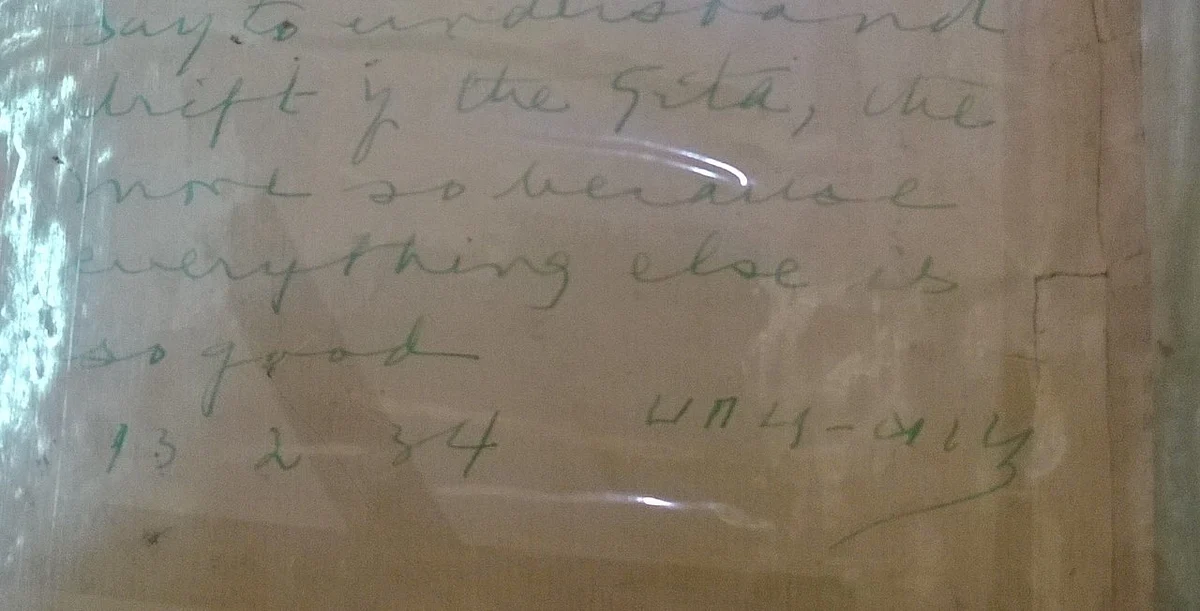 say to understand
drift if the Gita, the
more so because
everything else is
so good
13 2 34